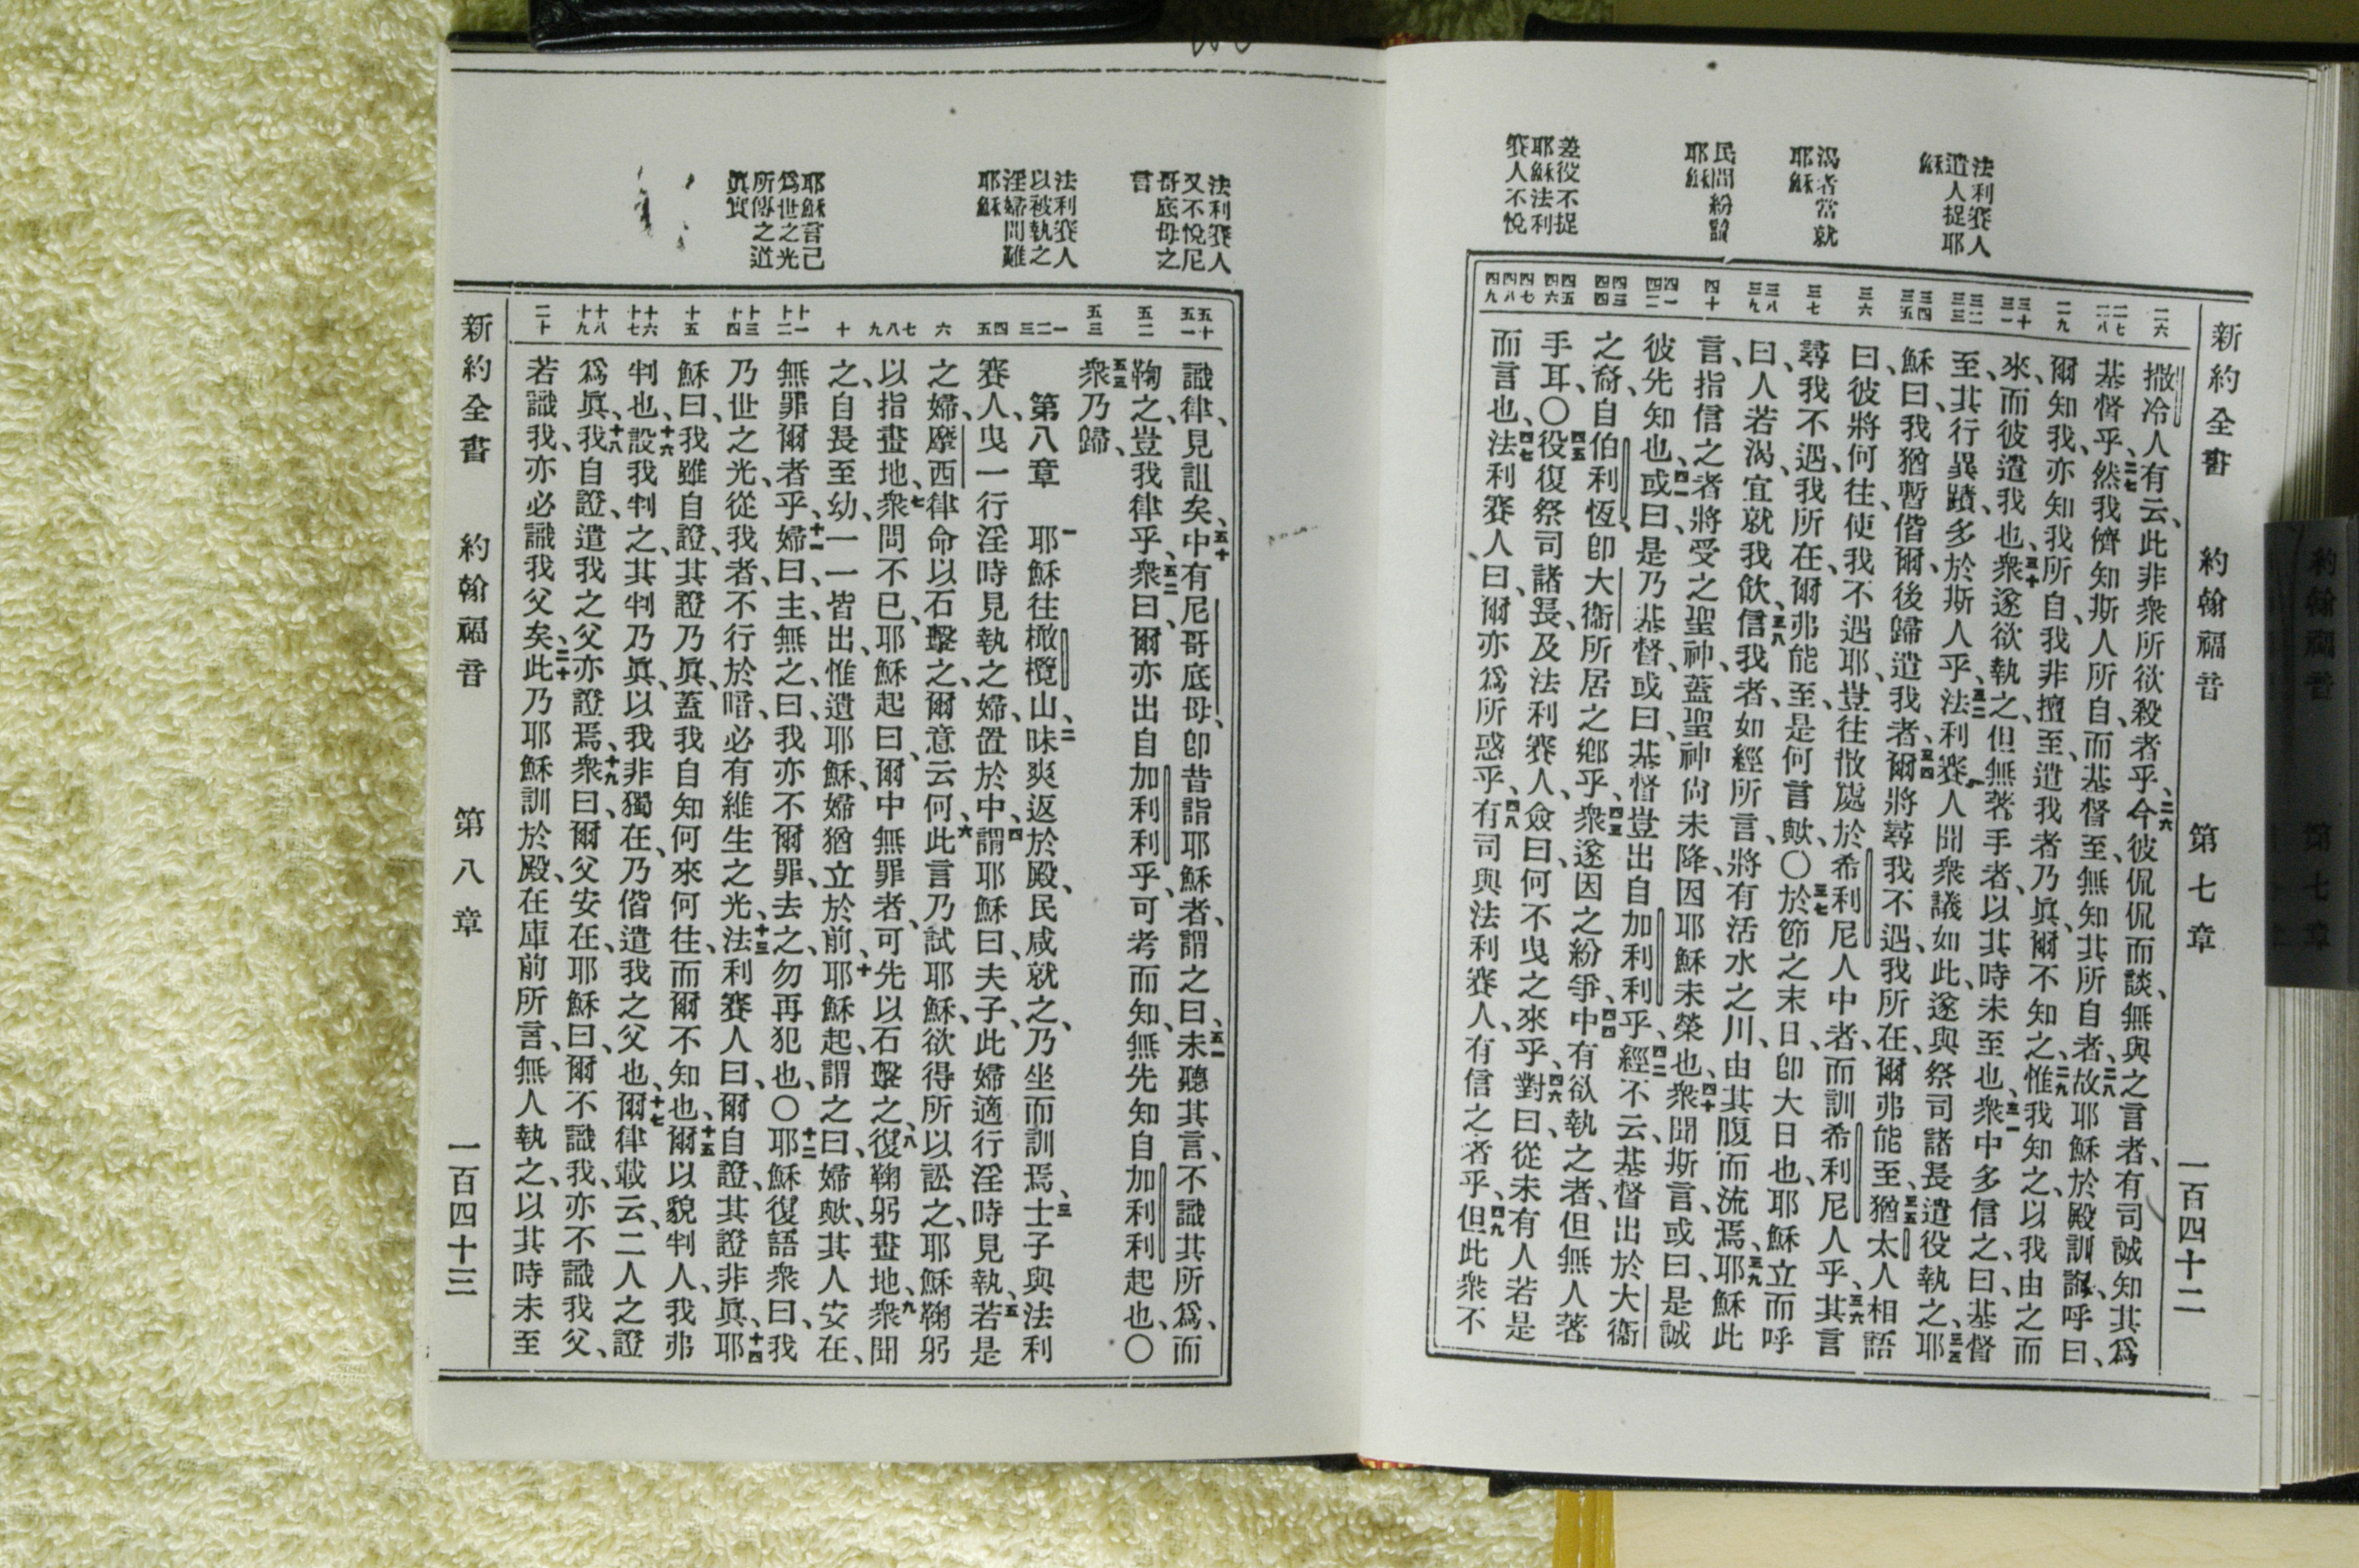 新約全書 約翰福音 第七章 一百四十二
法利賽人
遣人捉耶
穌
渴者當就
耶穌
民間紛論
耶穌
差役不捉
耶穌法利
賽人不悅
二六
二七
二八
二九
三十
三一
三二
三三
三四
三五
三六
三七
三八
三九
四十
四一
四二
四三
四四
四五
四六
四七
四八
四九
撒冷人有云、此非衆所欲殺者乎、二六今彼侃侃而談、無與之言者、有司誠知其爲
基督乎、二七然我儕知斯人所自、而基督至、無知其所自者、二八故耶穌於殿訓誨、呼曰、
爾知我、亦知我所自、我非擅至、遣我者乃眞、爾不知之、二九惟我知之、以我由之而
來、而彼遣我也、三十衆遂欲執之、但無著手者、以其時未至也、三一衆中多信之、曰、基督
至、其行異蹟、多於斯人乎、三二法利賽人聞衆議如此、遂與祭司諸長遣役執之、三三耶
穌曰、我猶暫偕爾、後歸遣我者、三四爾將尋我不遇、我所在、爾弗能至、三五猶太人相語
曰、彼將何往、使我不遇耶、豈往散處於希利尼人中者、而訓希利尼人乎、三六其言
尋我不遇、我所在、爾弗能至、是何言歟、〇三七於節之末日、卽大日也、耶穌立而呼
曰、人若渴、宜就我飲、三八信我者、如經所言、將有活水之川、由其腹而流焉、三九耶穌此
言、指信之者將受之聖神、蓋聖神尙未降、因耶穌未榮也、四十衆聞斯言、或曰、是誠
彼先知也、四一或曰、是乃基督、或曰、基督豈出自加利利乎、四二經不云、基督出於大衞
之裔、自伯利恆、卽大衞所居之鄕乎、四三衆遂因之紛爭、四四中有欲執之者、但無人著
手耳、〇四五役復祭司諸長及法利賽人、僉曰、何不曳之來乎、四六對曰、從未有人若是
而言也、四七法利賽人曰、爾亦爲所惑乎、四八有司與法利賽人、有信之者乎、四九但此衆不
法利賽人
又不悅尼
哥底母之
言
法利賽人
以被執之
淫婦問難
耶穌
耶穌言己
爲世之光
所傳之道
眞實
五十
五一
五二
五三
一
二
三
四
五
六
七
八
九
十
十一
十二
十三
十四
十五
十六
十七
十八
十九
二十
識律、見詛矣、五十中有尼哥底母、卽昔詣耶穌者、謂之曰、五一未聽其言、不識其所爲、而
鞫之、豈我律乎、五二衆曰、爾亦出自加利利乎、可考而知、無先知自加利利起也、〇
五三衆乃歸、
第八章 一耶穌往橄欖山、二昧爽返於殿、民咸就之、乃坐而訓焉、三士子與法利
賽人、曳一行淫時見執之婦、置於中、四謂耶穌曰、夫子、此婦適行淫時見執、五若是
之婦、摩西律命以石擊之、爾意云何、六此言乃試耶穌、欲得所以訟之、耶穌鞠躬
以指畫地、七衆問不已、耶穌起曰、爾中無罪者、可先以石擊之、八復鞠躬畫地、九衆聞
之、自長至幼、一一皆出、惟遺耶穌、婦猶立於前、十耶穌起謂之曰、婦歟、其人安在、
無罪爾者乎、十一婦曰、主、無之、曰、我亦不爾罪、去之、勿再犯也、〇十二耶穌復語衆曰、我
乃世之光、從我者、不行於暗、必有維生之光、十三法利賽人曰、爾自證、其證非眞、十四耶
穌曰、我雖自證、其證乃眞、蓋我自知何來何往、而爾不知也、十五爾以貌判人、我弗
判也、十六設我判之、其判乃眞、以我非獨在、乃偕遣我之父也、十七爾律載云、二人之證
爲眞、十八我自證、遣我之父亦證焉、十九衆曰、爾父安在、耶穌曰、爾不識我、亦不識我父、
若識我、亦必識我父矣、二十此乃耶穌訓於殿、在庫前所言、無人執之、以其時未至
新約全書 約翰福音 第八章 一百四十三